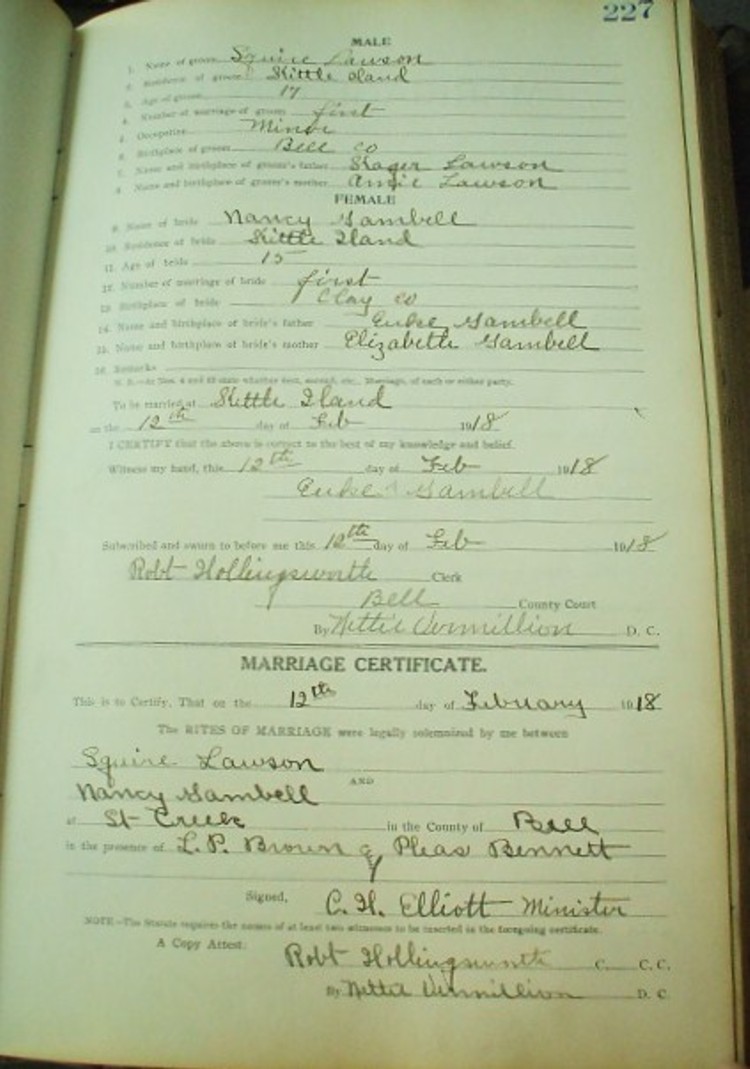 227
MALE
1. Name of groom Squire Lawson
2. Residence of groom Kittle Iland
3. Age of groom 17
4. Number of marriage of groom first
5. Occupation Minor
6. Birthplace of groom Bell co
7. Name and birthplace of groom's father Skager Lawson
8. Name and birthplace of groom's mother Lawson
FEMALE
9. Name of bride Nancy Gambell
10. Residence of bride Kittle Iland
11. Age of bride 15
12. Number of marriage of bride first
13. Birthplace of bride Clay co
14. Name and birthplace of bride's father Gambell
15. Name and birthplace of bride's mother Elizabeth Gambell
16. Remarks
N. B.—At Nos. 4 and 12 state whether first, second, etc., Marriage, of each or either party.
To be married at Kettle Iland
on the 12th day of Feb 1918
I CERTIFY that the above is correct to the best of my knowledge and belief.
Witness my hand, this 12th day of Feb 1918
Gambell
Subscribed and sworn to before me this 12th day of Feb 1918
Robt Hollingsworth Clerk
Bell County Court
By Nettie Vermillion D. C.
MARRIAGE CERTIFICATE.
This is to Certify, That on the 12th day of February 1918
The RITES OF MARRIAGE were legally solemnized by me between
Squire Lawson
AND
Nancy Gambell
at St Creek in the County of Bell
in the presence of L. P. Brown & Pleas Bennett
Signed, C. H. Elliott Minister
NOTE—The Statute requires the names of at least two witnesses to be inserted in the foregoing certificate.
A Copy Attest:
Robt Hollingsworth C. C. C.
By Nettie Vermillion D. C.